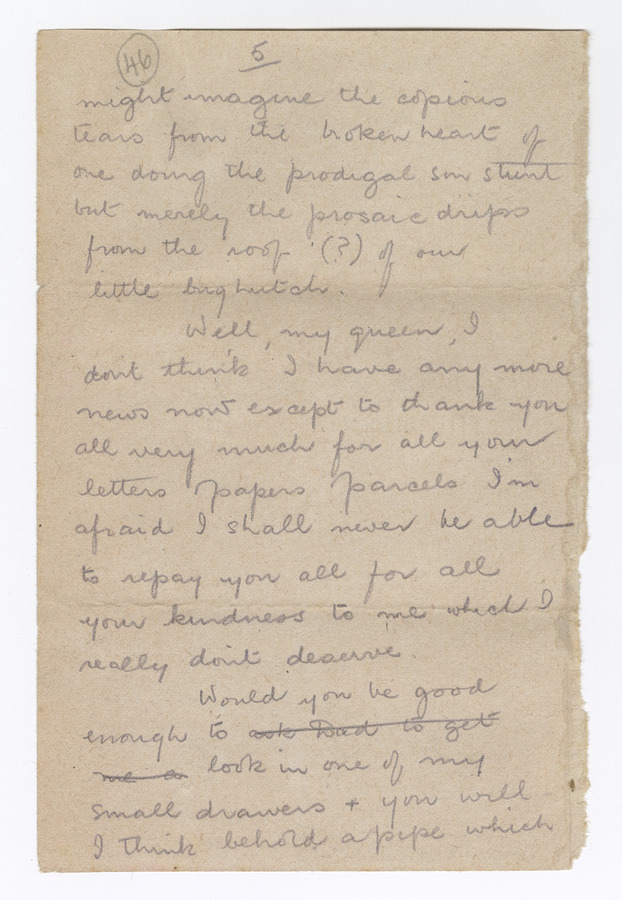 46
5
might imagine the copious
tears from the broken heart of
one doing the prodigal son stunt
but merely the prosaic drips
from the roof (?) of our
little bughutch.
Well, my queen, I
dont think I have any more
news now except to thank you
all very much for all your
letters papers parcels I'm
afraid I shall never be able
to repay you all for all
your kindness to me which I
really don't deserve.
Would you be good
enough to ask Dad to get
me a look in one of my
small drawers + you will
I think behold a pipe which